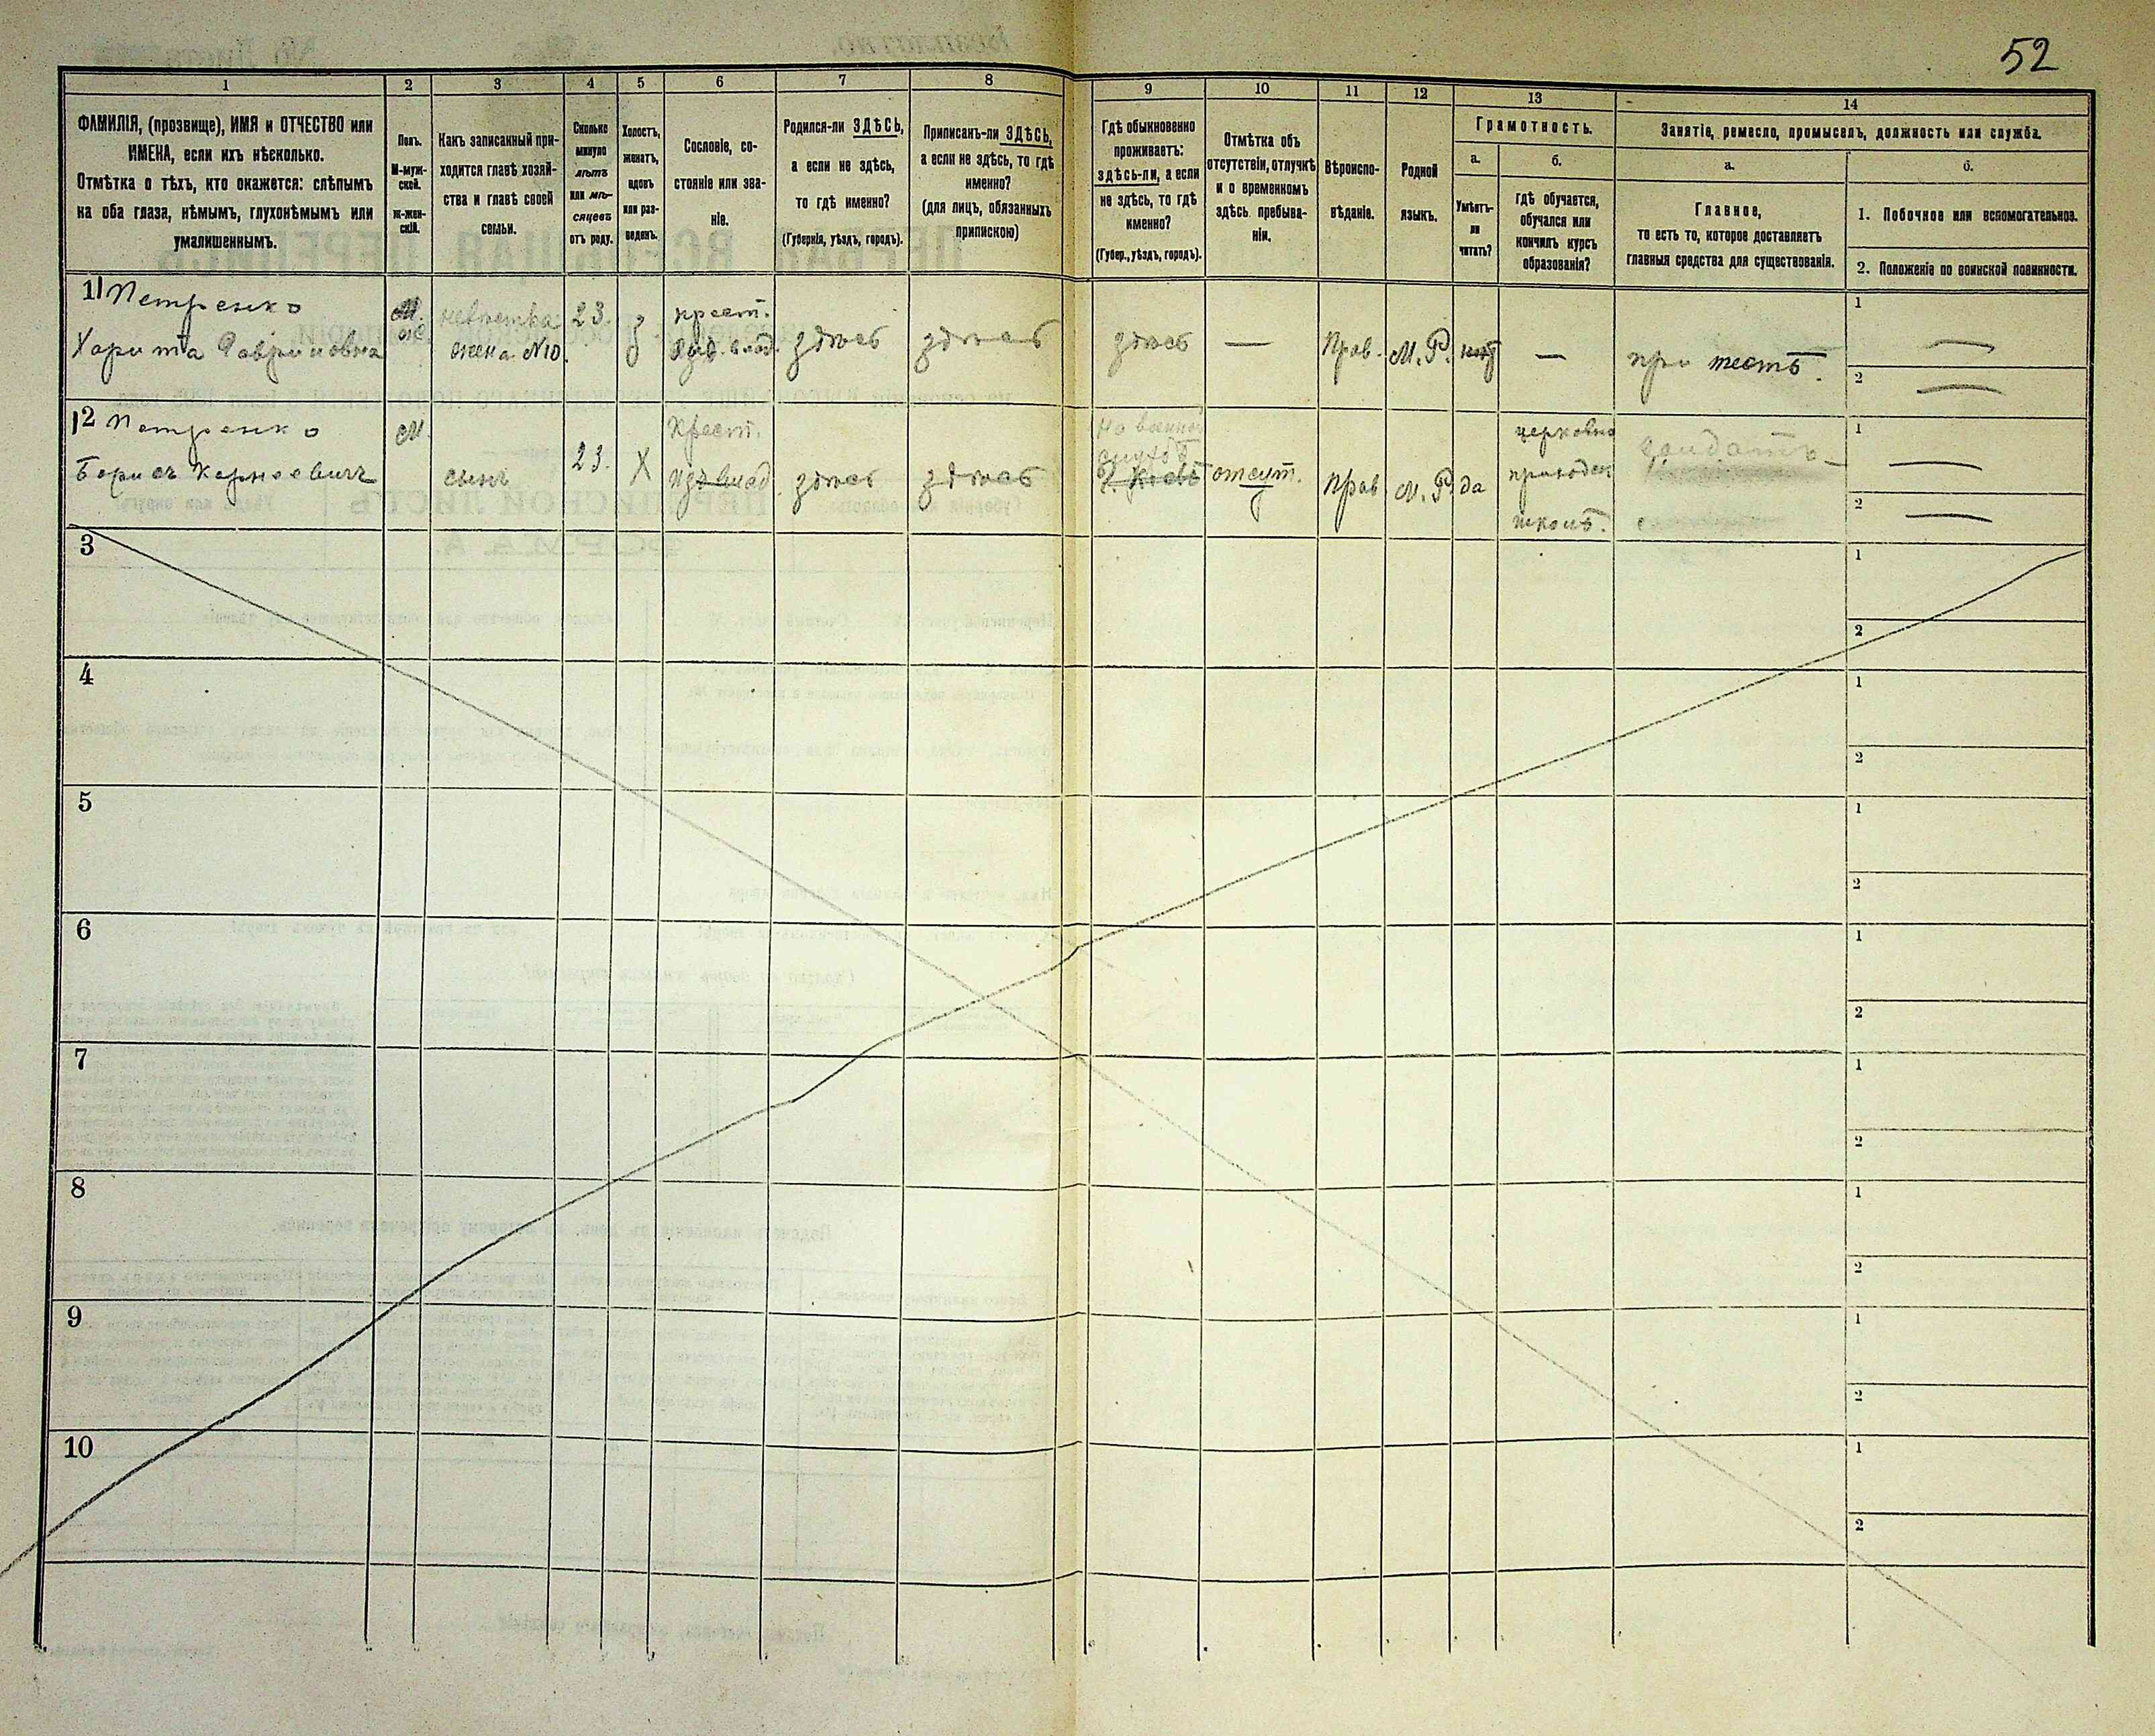 52
1
2
3
4
5
6
7
8
9
10
11
12
13
14
ФАМИЛІЯ, (прозвище), ИМЯ и ОТЧЕСТВО или
ИМЕНА, если ихъ нѣсколько.
Отмѣтка о тѣхъ, кто окажется: слѣпымъ
на оба глаза, нѣмымъ, глухонѣмымъ или
умалишеннымъ.
Полъ.
М-муж-
ской.
ж-жен-
скій.
Какъ записанный при-
ходится главѣ хозяй-
ства и главѣ своей
семьи.
Сколько
минуло
лѣтъ
или мѣ-
сяцевъ
отъ роду.
Холостъ,
женатъ,
вдовъ
или раз-
веденъ.
Сословіе, со-
стояніе или зва-
ніе.
Родился-ли ЗДѢСЬ,
а если не здѣсь,
то гдѣ именно?
(Губернія, уѣздъ, городъ).
Приписанъ-ли ЗДѢСЬ,
а если не здѣсь, то гдѣ
именно?
(для лицъ, обязанныхъ
припискою)
Гдѣ обыкновенно
проживаетъ:
здѣсь-ли, а если
не здѣсь, то гдѣ
именно?
(Губер., уѣздъ, городъ).
Отмѣтка объ
отсутствіи, отлучкѣ
и о временномъ
здѣсь пребыва-
ніи.
Вѣроиспо-
вѣданіе.
Родной
языкъ.
Грамотность.
а.
Умѣетъ-
ли
читать?
б.
Гдѣ обучается,
обучался или
кончилъ курсъ
образованія?
Занятіе, ремесло, промыселъ, должность или служба.
а.
Главное,
то есть то, которое доставляетъ
главныя средства для существованія.
б.
1. Побочное или вспомогательное.
2. Положеніе по воинской повинности.
11 Петренко
Харита Гавриловна
ж.
невѣстка
жена №10.
23.
з
крест.
здѣсь
здѣсь
здѣсь
—
Прав.
М. Р.
нѣтъ
—
при тестѣ.
1 —
2 —
12 Петренко
Борисъ Корнеевичъ
М.
сынъ
23.
Х
Крест.
здѣсь
здѣсь
На военной
службѣ
г. Кіевъ
отсут.
Прав.
М. Р.
да
церковно
приходск
школѣ.
солдатъ
1 —
2 —
3
1
2
4
1
2
5
1
2
6
1
2
7
1
2
8
1
2
9
1
2
10
1
2